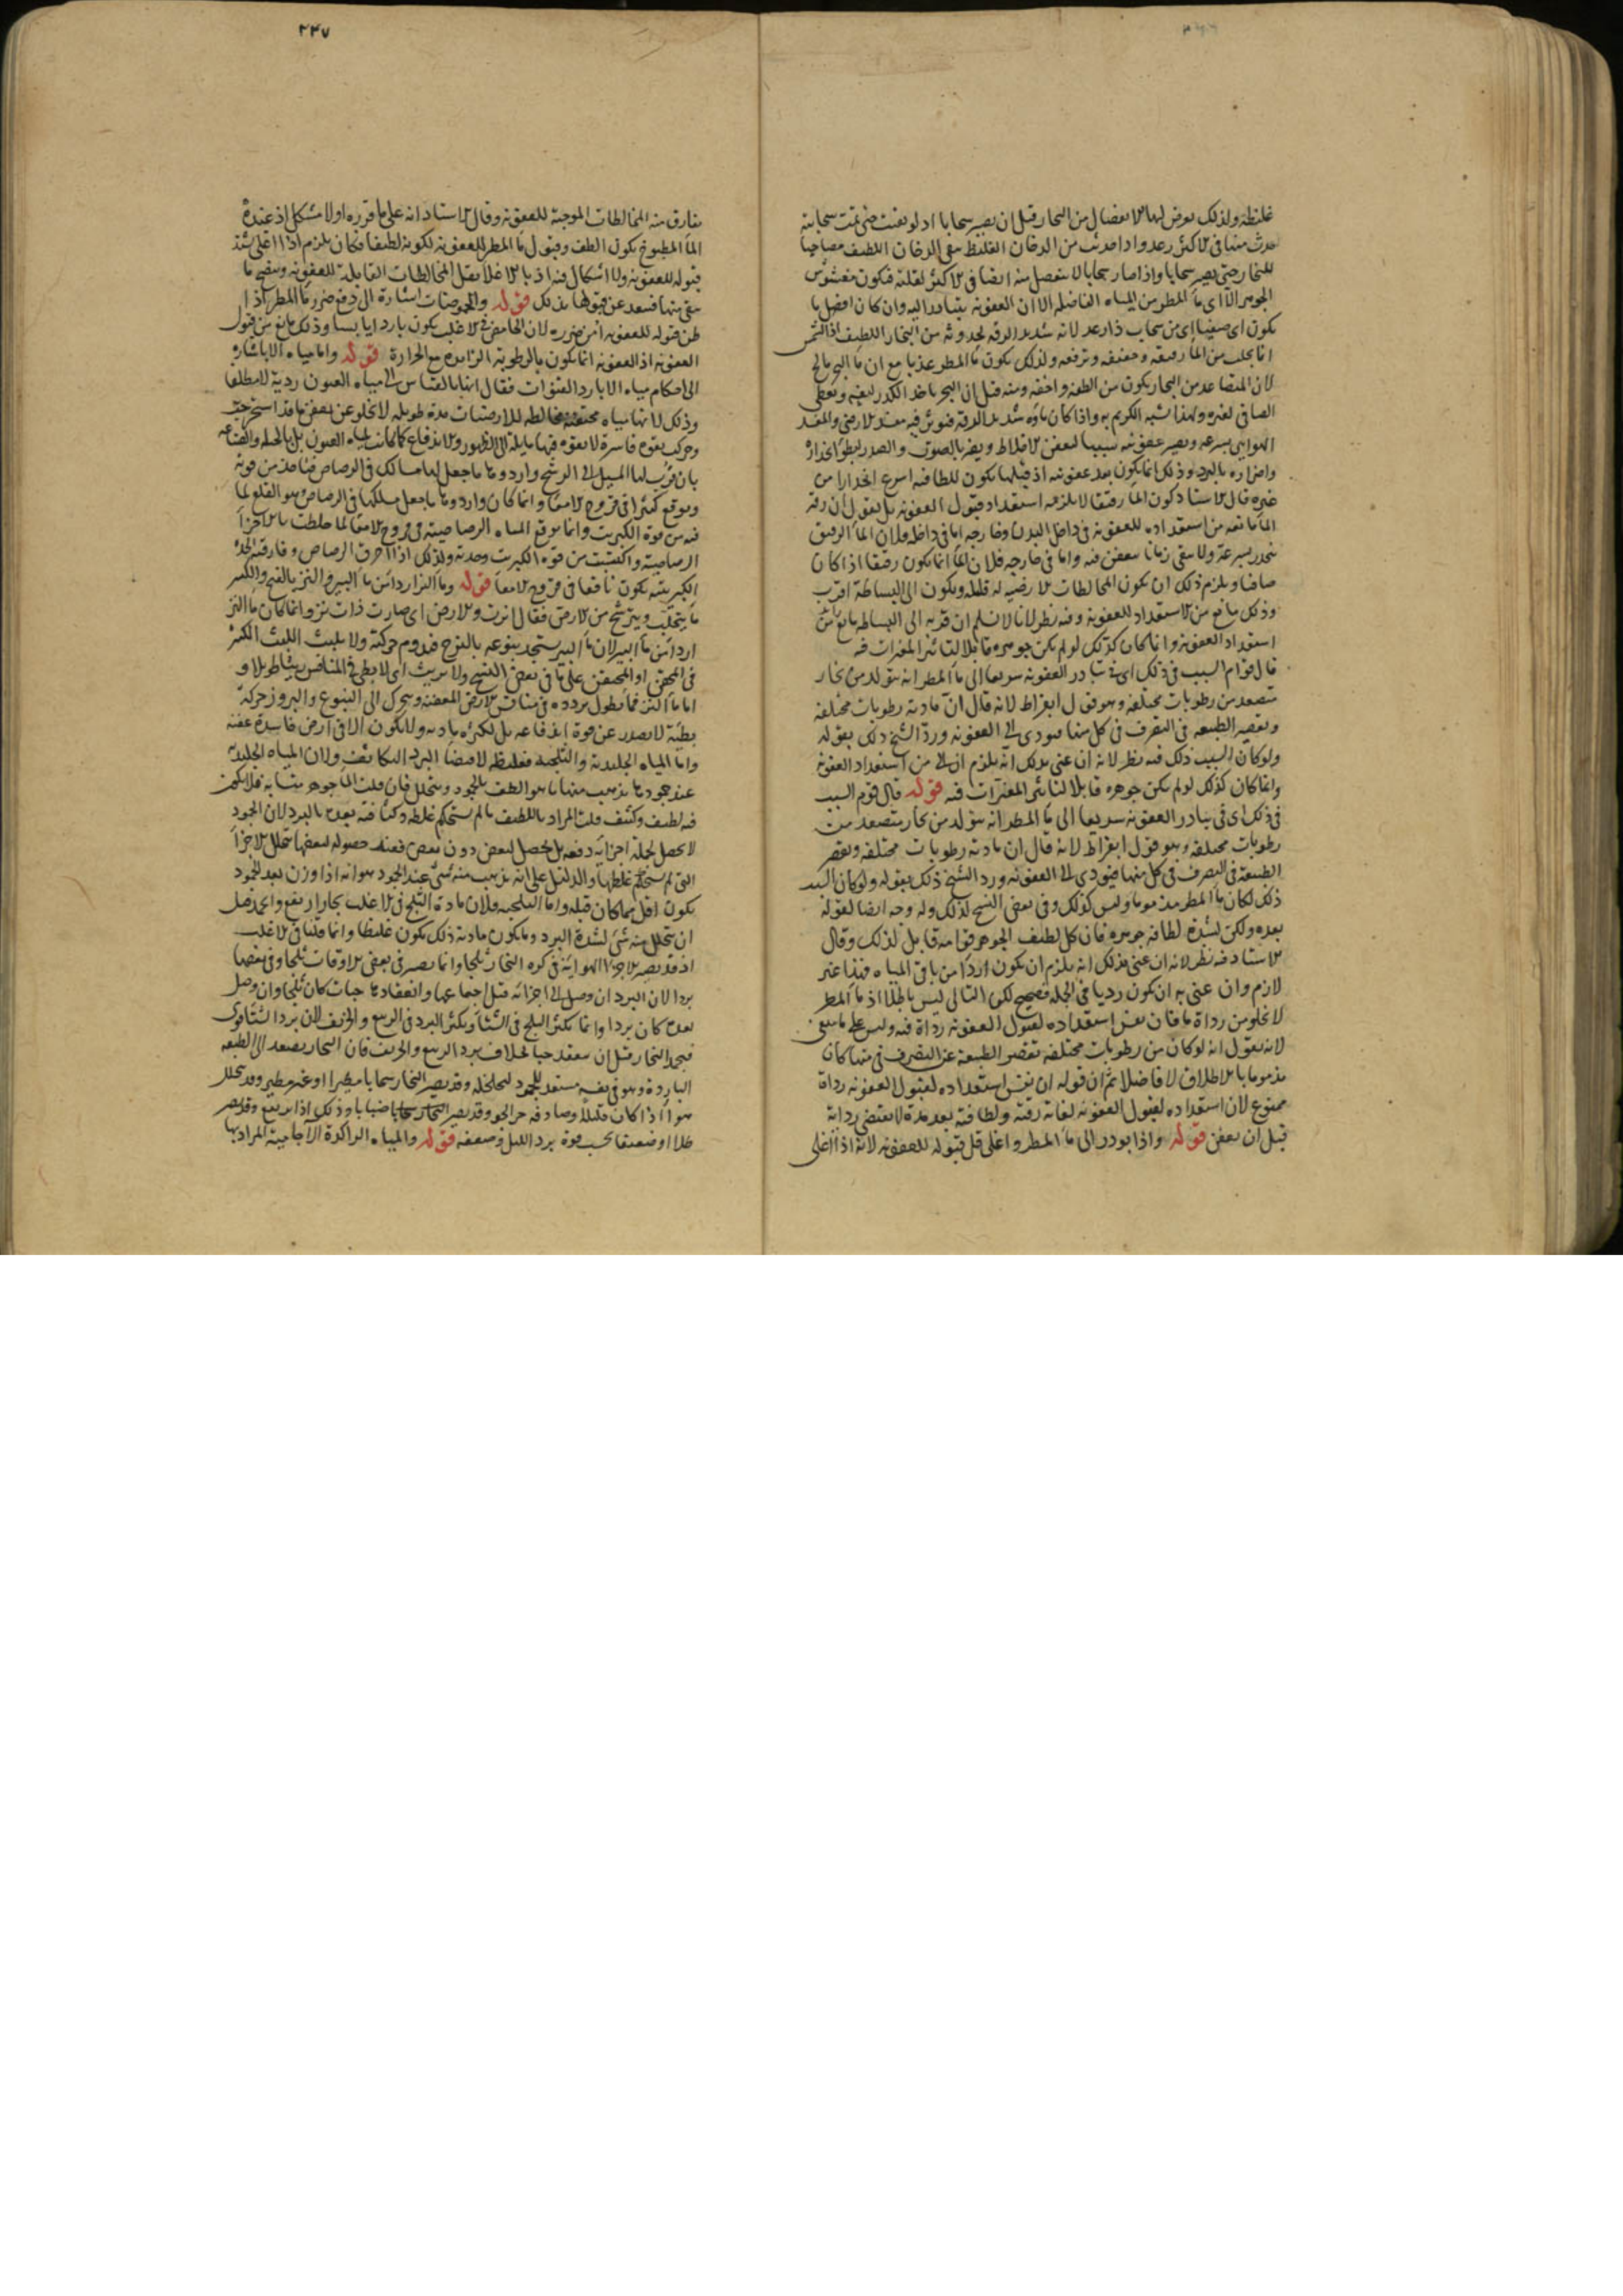 غليظه ولذلك يعرض لها الانفصال من البخار قبل ان يصير سحابا اذ لو بقيت حتى تمت سحابية
حدث منها في الاكثر رعد واذا حدثت من الدخان الغليظ بقي الدخان اللطيف مصاحبا
للبخار حتى يصير سحابا واذا صار سحابا لا ينفصل منه ايضا في الاكثر لقلته فيكون مغشوش
الجوهر الا اي ماء المطر من المياه الفاضله الا ان العفونه يتبادر اليه وان كان افضل ما
يكون اي صيفيا اي من سحاب ذا رعد لانه شديد الرقه لحدوثه من البخار اللطيف اذ الشمس
انما يجلب من الماء رقيقه وخفيفه وترفعه ولذلك يكون ماء المطر عذبا مع ان ماء البحر مالح
لان المتصاعد من البحار يكون من الطفه واخفه ومنه قيل ان البحر ياخذ الكدر لنفسه ويعطي
الصافي لغيره ولهذا شبه الكريم به واذا كان ماؤه شديد الرقه فيؤثر فيه مفسد الارضي والمفسد
الهوايي بسرعه ويصير عفونته سببا لتعفن الاخلاط ويضر بالصوت والصدر لبطو انحداره
واضراره بالبرد وذلك انما يكون بعد عفونته اذ قبلها يكون للطافته اسرع انحدارا من
غيره قال الاستاد كون الماء رقيقا لا يلزمه استعداد قبول العفونه بل نقول ان رقه
الماء مانعه من استعداده للعفونة في داخل البدن وخارجه اما في داخله فلان الماء الرقيق
ينحدر بسرعه ولا يبقى زمانا يتعفن فيه واما في خارجه فلان الماء انما يكون رقيقا اذا كان
صافيا ويلزم ذلك ان يكون المخالطات الارضيه له قليله ويكون الى البساطة اقرب
وذلك مانع من الاستعداد للعفونة وفيه نظر لانا لا نسلم ان قربه الى البساطه مانع من
استعداد العفونه وانما كان كذلك لو لم يكن جوهره قابلا لتاثير المغيرات فيه
قال قوام السبب في ذلك اي في تبادر العفونه سريعا الى ماء المطر انه يتولد من بخار
متصعد من رطوبات مختلفه وهو قول ابقراط لانه قال ان مادته رطوبات مختلفه
وتقصير الطبيعه في التصرف في كل منها فيودي الى العفونه وردّ الشيخ ذلك بقوله
ولو كان السبب ذلك فيه نظر لانه ان عنى بذلك انه يلزم ان من استعداد العفونة
وانما كان كذلك لو لم يكن جوهره قابلا لتاثير المغيرات فيه قوله قال قوم السبب
في ذلك اي في تبادر العفونه سريعا الى ماء المطر انه يتولد من بخار متصعد من
رطوبات مختلفه وهو قول ابقراط لانه قال ان مادته رطوبات مختلفه وتقصر
الطبيعة في التصرف في كل منها فيودي الى العفونه ورد الشيخ ذلك بقوله ولو كان السبب
ذلك لكان ماء المطر مذموما وليس كذلك وفي بعض النسخ لذلك وله وجه ايضا لقوله
بعده ولكن لشدة لطافه جوهره فان كل لطيف الجوهر قوامه قابل لذلك وقال
الاستاد فيه نظر لانه ان عنى بذلك انه يلزم ان يكون اردأ من باقي المياه فهذا غير
لازم وان عنى به ان يكون رديا في الجملة فصحيح لكن التالي ليس باطلا اذ ماء المطر
لا يخلو من رداة ما فان نفس استعداده لقبول العفونه رداة فيه وليس على ما ينبغي
لانه يقول انه لو كان من رطوبات مختلفه تقصر الطبيعة عن التصرف في منها كان
مذموما بالاطلاق لا فاضلا ثم ان قوله ان نفس استعداده لقبول العفونه رداة
ممنوع لان استعداده لقبول العفونه لغاية رقته ولطافته بعد مدة لا يقتضي رداته
قبل ان يعفن قوله واذا بودر الى ماء المطر واغلى قل قبوله للعفونه لانه اذا اغلى
٢٣٧
يفارق منه المخالطات الموجبة للعفونة وقال الاستاد انه على ما قرره اولا مشكل اذ عنده
الماء المطبوخ يكون الطف وقبول ماء المطر للعفونه لكونه لطيفا فكان يلزم اذا اغلى شدة
قبوله للعفونه ولا اشكال فيه اذ بالاغلا يقل المخالطات القابلة للعفونه ويبقى ما
بقي منها فيبعد عن قبولها بذلك قوله والحموضات اشارة الى دفع ضرر ماء المطر اذا
ظن قبوله للعفونه امن ضرره لان الحامض في الاغلب يكون باردا يابسا وذلك مانع من قبول
العفونه اذ العفونه انما يكون بالرطوبة الزايدة مع الحرارة قوله واما مياه الابار اشاره
الى احكام مياه الابار والقنوات فقال انها بالقياس الى مياه العيون ردية لا مطلقا
وذلك لانها مياه محتقنه مخالطه للارضيات مدة طويله لا تخلو عن تعفن ما قد استخرجت
وحركت بقوه قاسرة لا بقوه فيها مايلة الى الظهور والاندفاع كما كانت لمياه العيون بل بالحيله والصناعه
بان قرب لها السبيل الى الرشح واردوها ما جعل لها مسالك في الرصاص فياخذ من قوته
ويوقع كثيرا في قروح الامعاء وانما كان واردوها ما جعل مسلكها في الرصاص وهو القلع لما
فيه من قوة الكبريت وانما يوقع المياه الرصاصية في قروح الامعاء لما خلطت بالاجزاء
الرصاصية واكتسبت من قوه الكبريت وحدته ولذلك اذا احرق الرصاص وفارقته الحدة
الكبريتيه يكون نافعا في قروح الامعا قوله وماء النز اردا من ماء البير والنز بالفتح والكسر
ما يتحلب ويترشح من الارض فقال انزت الارض اي صارت ذات نز وانما كان ماء النز
اردا من ماء البير لان ماء البير يستجد ينبوعه بالنزح فيدوم حركته ولا يلبث اللبث الكثير
في المحقن او المحتقن على ما في بعض النسخ ولا يريث اي لا يبطي في المنافس ريثا طويلا و
اما ماء النز فماء يطول تردده في منافس الارض المعفنة ويتحرك الى النبوع والبروز حركة
بطيئة لا يصدر عن قوة اندفاعه بل لكثرة مادته ولا يكون الا في ارض فاسدة عفنه
واما المياه الجليدية والثلجية فغليظه لاقتضا البرد التكاثف ولان المياه الجليدية
عند جمودها يذهب منها ما هو الطف بالجمود ويتحلل فان قلت الماء جوهر متشابه فلا يكون
فيه لطيف وكثيف قلت المراد باللطيف ما لم يستحكم غلظه وكثافته بعد بالبرد لان الجمود
لا يحصل لجملة اجزايه دفعه بل يحصل لبعض دون بعض فعند حصوله لبعضها تتحلل الاجزاء
التي لم يستحكم غلظها والدليل على انه يذهب منه شيء عند الجمود هو انه اذا وزن بعد الجمود
يكون اقل مما كان قبله واما الثلجيه فلان مادة الثلج في الاغلب بخار ارتفع وانجمد قبل
ان يتحلل منه شيء لشدة البرد وما يكون مادته ذلك يكون غليظا وانما قلنا في الاغلب
اذ قد يصير الاجزاء الهوائية في كره البخار ثلجا وانما يصير في بعض الاوقات ثلجا وفي بعضها
بردا لان البرد ان وصل الى اجزائه قبل اجتماعها وانعقادها حبات كان ثلجا وان وصل
بعده كان بردا وانما يكثر الثلج في الشتاء ويكثر البرد في الربيع والخريف لان برد الشتا قوي
فيجمد البخار قبل ان ينعقد حبا بخلاف برد الربيع والخريف فان البخار يصعد الى الطبقه
الباردة وهو في نفسه مستعد للجمود لتخلخله وقد يصير البخار سحابا مطيرا او غير مطير وقد يتحلل
هواء اذا كان قليلا وصادفه حر الجو وقد يصير البخار ضبابا وذلك اذا لم يرتفع وقد يصير
طلا او صقيعا بحسب قوة برد الليل وضعفه قوله والمياه الراكدة الاجامية المراد بها